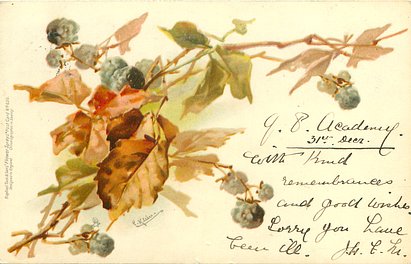 G. P. Academy.
31st Decr.
With kind
remembrances
and good wishes
Sorry you have
been ill.
C. Klein